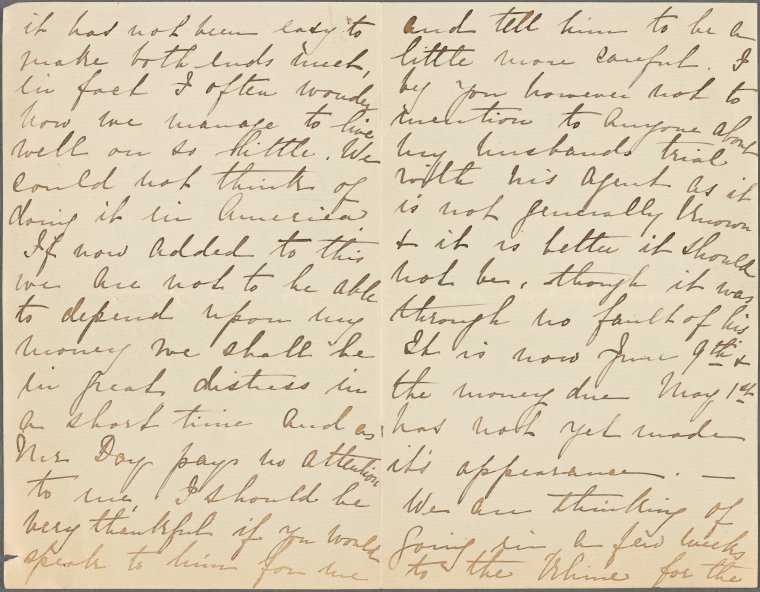 it has not been easy to
make both ends meet,
in fact I often wonder
how we manage to live
well on so little. We
could not think of
doing it in America.
If now added to this
we are not to be able
to depend upon my
money we shall be
in great distress in
a short time and as
Mr Day pays no attention
to me, I should be
very thankful if you would
speak to him for me
and tell him to be a
little more careful. I
beg you however not to
mention to anyone about
my husbands trial
with his agent as it
is not generally known
& it is better it should
not be, though it was
through no fault of his
It is now June 9th &
the money due May 1st
has not yet made
it's appearance. —
We are thinking of
going in a few weeks
to the Rhine for the